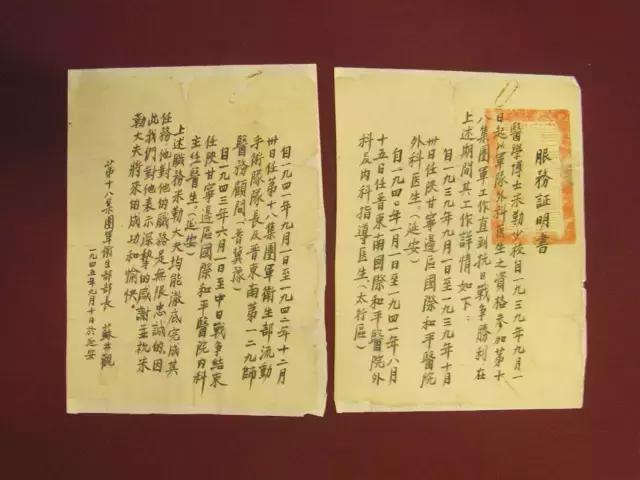 服務証明書
醫學博士米勒少校自一九三九年九月一
日起以軍隊外科醫生之資格參加第十
八集團軍工作直到抗日戰爭勝利在
上述期間其工作詳情如下：
自一九三九年九月一日至一九三九年十月
卅日任陝甘寧邊區國際和平醫院
外科医生、（延安）
自一九四〇年一月一日至一九四一年八月
十五日任晉東南國際和平醫院外
科及内科指導医生、（太行區）
自一九四一年九月一日至一九四二年十二月
卅日任第十八集團軍衛生部流動
手術隊隊長及晉東南第一二九師
醫務顧問、（晉冀豫）
自一九四三年六月一日至中日戰爭結束
任陝甘寧邊區國際和平醫院内科
主任醫生、（延安）
上述職務米勒大夫均能澈底完成其
任務他對他的職務是無限忠誠的、因
此我們對他表示深摯的感謝並祝米
勒大夫將來的成功和愉快
第十八集團軍衛生部部長 蘇井觀
一九四五年九月十日於延安